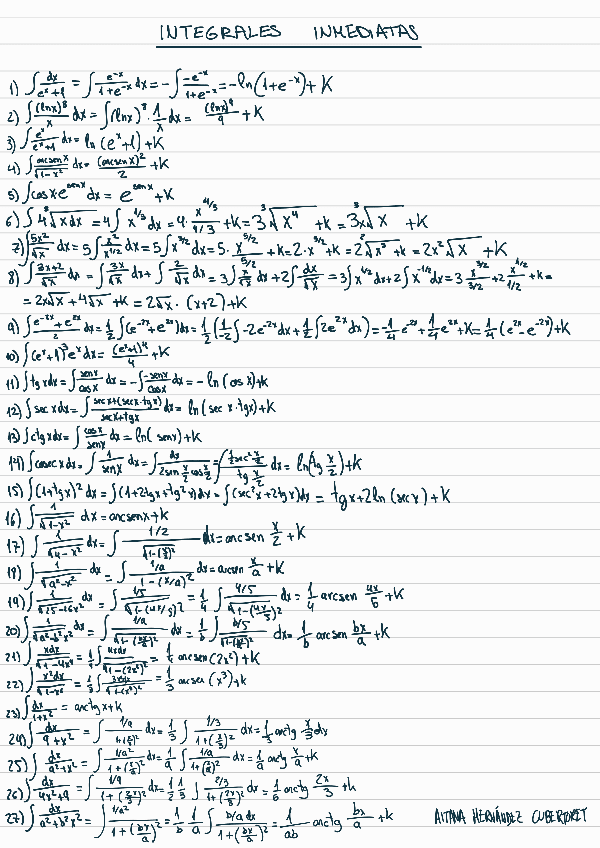 INTEGRALES INMEDIATAS
1) ∫ dx/(eˣ+1) = ∫ e⁻ˣ/(1+e⁻ˣ) dx = -∫ -e⁻ˣ/(1+e⁻ˣ) = -ln(1+e⁻ˣ)+K
2) ∫ (lnx)⁸/x dx = ∫(lnx)⁸ · 1/x dx = (lnx)⁹/9 + K
3) ∫ eˣ/(eˣ+1) dx = ln (eˣ+1)+K
4) ∫ arcsenx/√(1-x²) dx = (arcsenx)²/2 + K
5) ∫cosx·e^(senx) dx = e^(senx) + K
6) ∫ 4∛x dx = 4∫ x^(1/3) dx = 4· x^(4/3)/(4/3) + K = 3∛(x⁴) + K = 3x∛x + K
7) ∫ 5x²/√x dx = 5∫ x²/x^(1/2) dx = 5∫x^(3/2) dx = 5· x^(5/2)/(5/2) + K = 2·x^(5/2) + K = 2√(x⁵) + K = 2x²√x + K
8) ∫ (3x+2)/√x dx = ∫ 3x/√x dx + ∫ 2/√x = 3∫ x/√x dx + 2∫ dx/√x = 3∫x^(1/2) dx + 2∫x^(-1/2) dx = 3 x^(3/2)/(3/2) + 2 x^(1/2)/(1/2) + K =
= 2x√x + 4√x + K = 2√x · (x+2) + K
9) ∫ (e⁻²ˣ+e²ˣ)/2 dx = 1/2 ∫ (e⁻²ˣ+e²ˣ)dx = 1/2 (1/-2 ∫-2e⁻²ˣdx + 1/2 ∫2e²ˣ dx) = -1/4 e⁻²ˣ + 1/4 e²ˣ + K = 1/4 (e²ˣ - e⁻²ˣ) + K
10) ∫ (eˣ+1)³ eˣ dx = (eˣ+1)⁴/4 + K
11) ∫ tgxdx = ∫ senx/cosx dx = -∫ -senx/cosx dx = -ln (cosx)+K
12) ∫ secxdx = ∫ secx+(secx·tgx)/secx+tgx dx = ln (sec x·tgx)+K
13) ∫ctgxdx = ∫ cosx/senx dx = ln( senx)+K
14) ∫cosecxdx = ∫ 1/senx dx = ∫ dx/(2sen x/2 cos x/2) = ∫ (1/2 sec² x/2)/(tg x/2) dx = ln(tg x/2)+K
15) ∫(1+tgx)² dx = ∫(1+2tgx+tg²x)dx = ∫(sec²x+2tgx)dx = tgx+2ln (secx)+K
16) ∫ 1/√(1-x²) dx = arcsenx+K
17) ∫ 1/√(4-x²) dx = ∫ (1/2)/√(1-(x/2)²) dx = arcsen x/2 + K
18) ∫ 1/√(a²-x²) dx = ∫ (1/a)/(1-(x/a)²) dx = arcsen x/a + K
19) ∫ 1/√(25-16x²) dx = ∫ (1/5)/√(1-(4x/5)²) = 1/4 ∫ (4/5)/√(1-(4x/5)²) dx = 1/4 arcsen 4x/5 + K
20) ∫ 1/√(a²-b²x²) dx = ∫ (1/a)/√(1-(bx/a)²) dx = 1/b ∫ (b/5)/√(1-(bx/a)²) dx = 1/b arcsen bx/a + K
21) ∫ xdx/√(1-4x⁴) = 1/4 ∫ 4xdx/√(1-(2x²)²) = 1/4 arcsen(2x²)+K
22) ∫ x²dx/√(1-x⁶) = 1/3 ∫ 3x²dx/√(1-(x³)²) = 1/3 arcsen (x³)+K
23) ∫ dx/(1+x²) = arctgx+K
24) ∫ dx/(9+x²) = ∫ (1/9)/(1+(x/3)²) dx = 1/3 ∫ (1/3)/(1+(x/3)²) dx = 1/3 arctg x/3 dx
25) ∫ dx/(a²+x²) = ∫ (1/a²)/(1+(x/a)²) dx = 1/a ∫ (1/a)/(1+(x/a)²) dx = 1/a arctg x/a + K
26) ∫ dx/(4x²+9) = ∫ (1/9)/(1+(2x/3)²) dx = 1/2 1/3 ∫ (2/3)/(1+(2x/3)²) dx = 1/6 arctg 2x/3 + K
27) ∫ dx/(a²+b²x²) = ∫ (1/a²)/(1+(bx/a)²) = 1/b 1/a ∫ (b/a dx)/(1+(bx/a)²) = 1/ab arctg bx/a + K
AITANA HERNÁNDEZ CUBERTORET